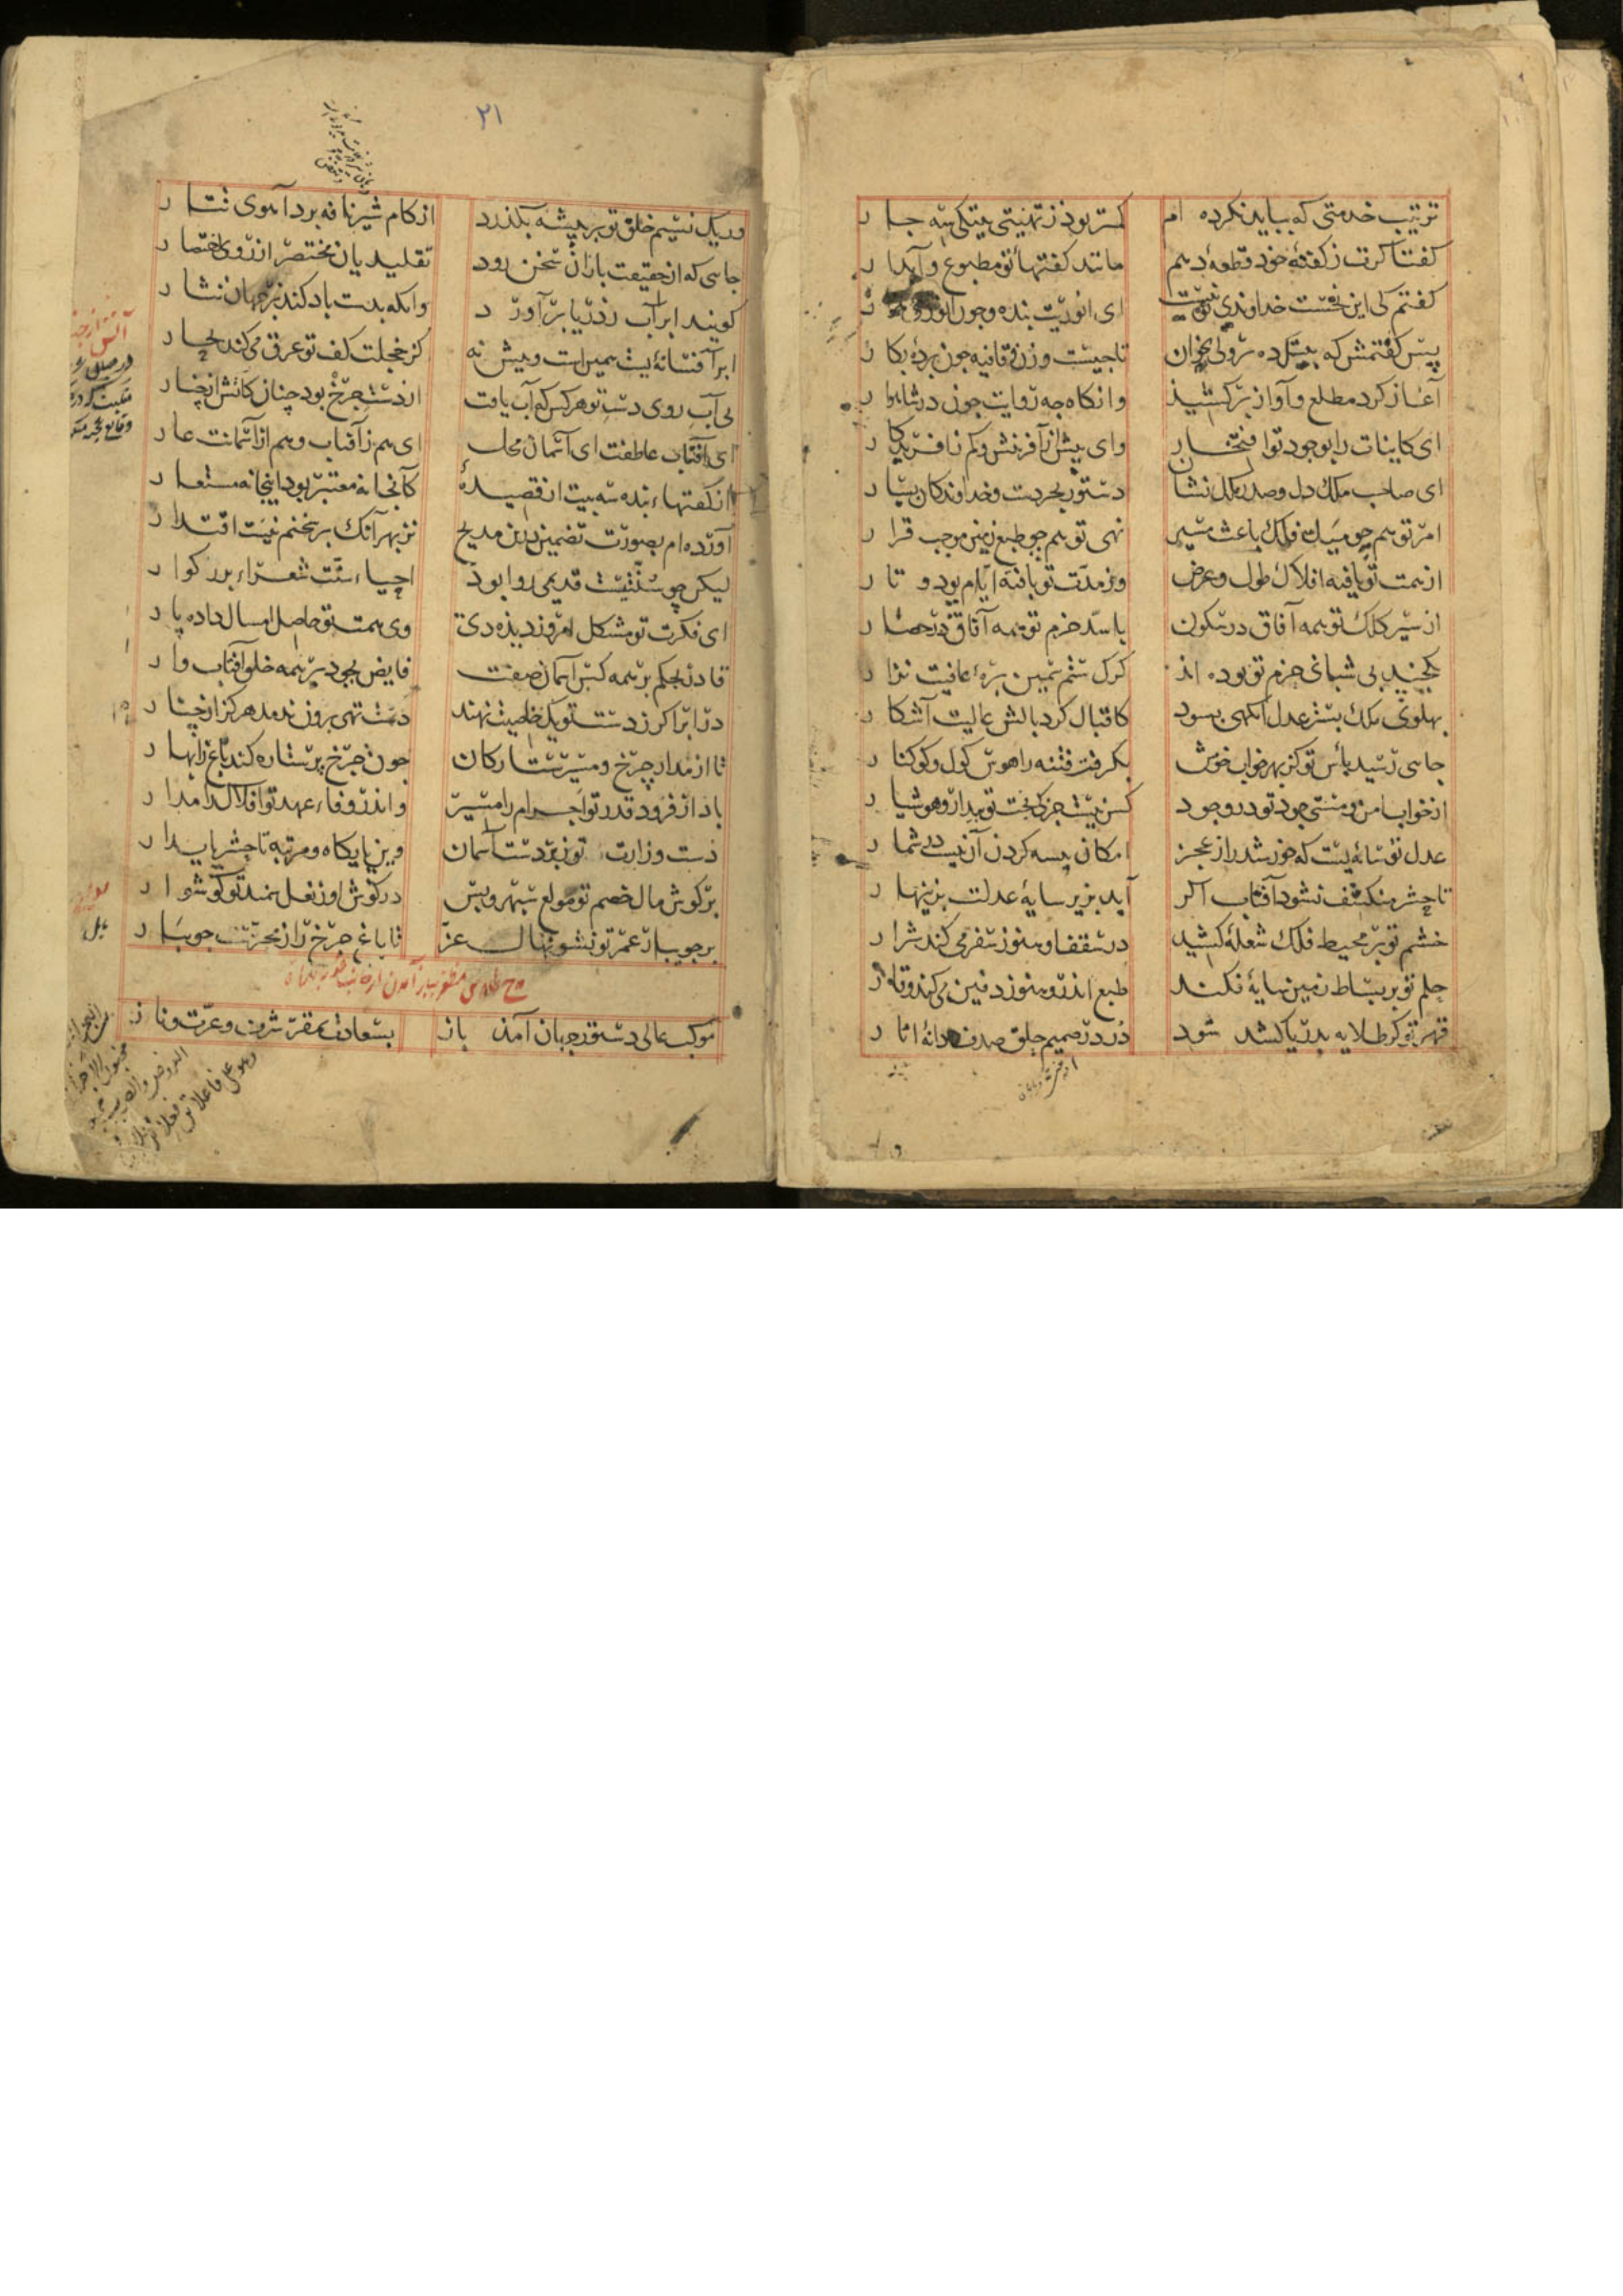 ترتیب خدمتی که بباید نکرده ام کمتر بود ز تهنیتی بیتکی سه جا ر
کفتا کرت ز کفتهٔ خود قطعهٔ دهم مانند کفتهاء تو مطبوع و آبدا ر
کفتم کی این نخست خداوندی تو نیست ای انوریت بنده و چون انوری
پس کفتمش که بیتکی ده بر ولی بخوان تا چیست وزن و قافیه چون برده بکا ر
آغاز کرد مطلع و آواز برکشید وانکاه چه روایت چون در شاهوا ر
ای کاینات را بوجود تو افتخار وای بیش از آفرینش و کم ز آفریدکا ر
ای صاحب ملک دل و صدر ملک نشان دستور بحر دست و خداوند کان یسا ر
امر تو همچو میل فلک باعث مسیر نهی تو همچو طبع زمین موجب قرا ر
از همت تو یافته افلاک طول و عرض وز مدت تو یافته ایام پود و تا ر
از سیر کلک تو همه آفاق در سکون با سد حزم تو همه آفاق در حصا ر
بی شبانی حزم تو بوده اند کرک ستم سمین برهٔ عافیت نزا ر
پهلوی ملک بستر عدل انکهی بسود کاقبال کرد بالش عالیت آشکا ر
جایی رسید باس تو کز بهر خواب خوش بکرفت فتنه را هوس کوک و کوکنا ر
از خواب امن و مستی جود تو در وجود کس نیست جز که بخت تو بیدار و هوشیا ر
عدل تو سایه ایست که خورشید را ز عجز امکان پیسه کردن آن نیست در شما ر
تا حشر منکسف نشود آفتاب اکر آید بزیر سایهٔ عدلت بزینها ر
خشم تو بر محیط فلک شعلهٔ کشید در سقف او هنوز سفر می کند شرا ر
حلم تو بر بساط زمین سایهٔ فکند طبع اندرو هنوز دفین می کند وقا ر
قهر تو کر طلایه بدریا کشد شود در در صمیم حلق صدف دانهٔ انا ر
۲۱
ور یک نسیم خلق تو بر بیشه بکذرد از کام شیر نافه برد آهوی تتا ر
جایی که از حقیقت باران سخن رود تقلیدیان مختصر از روی اختصا ر
کویند ابر آب ز دریا برآورد وانکه بدست باد کند بر جهان نثا ر
ابر آفسانهٔ بیش همیراست و بیش نه کز خجلت کف تو عرق می کند بحا ر
بی آب روی دست تو هر کس که آب یافت از دست چرخ بود چنان کاتش از چنا ر
ای آفتاب عاطفت ای آسمان محل ای هم ز آفتاب و هم از آسمانت عا ر
از کفتهاء بنده سه بیت از قصیدهٔ کانجا نه معتبر بود اینجا نه مستعا ر
آورده ام بصورت تضمین درین مدیح نز بهر آنک بر سخنم نیست اقتدا ر
لیکن چو سنتیست قدیمی روا بود احیاء سنت شعراء بزرکوا ر
ای فکرت تو مشکل امروز دیده دی وی همت تو حاصل امسال داده پا ر
قادر بحکم بر همه کس آسمان صفت فایض بجود بر همه خلق آفتاب وا ر
در ابر اکر ز دست تو یک خاصیت نهند دست تهی برون ندمد هرکز از چنا ر
تا از مدار چرخ و مسیر ستارکان چون چرخ پر ستاره کند باغ را بها ر
باد از فرود قدر تو اجرام را مسیر واندر وفاء عهد تو افلاک را مدا ر
دست وزارت تو زبردست آسمان وین پایکاه و مرتبه تا حشر پایدا ر
بر کوش مال خصم تو مولع سپهر و پس در کوش او ز نعل سمند تو کوشوا ر
بر جویبار عمر تو نشو نهال عز تا باغ چرخ را ز مجرتست جویبا ر
موکب عالی دستور جهان آمد باز بسعادت بمقر شرف و عزت و نا ز